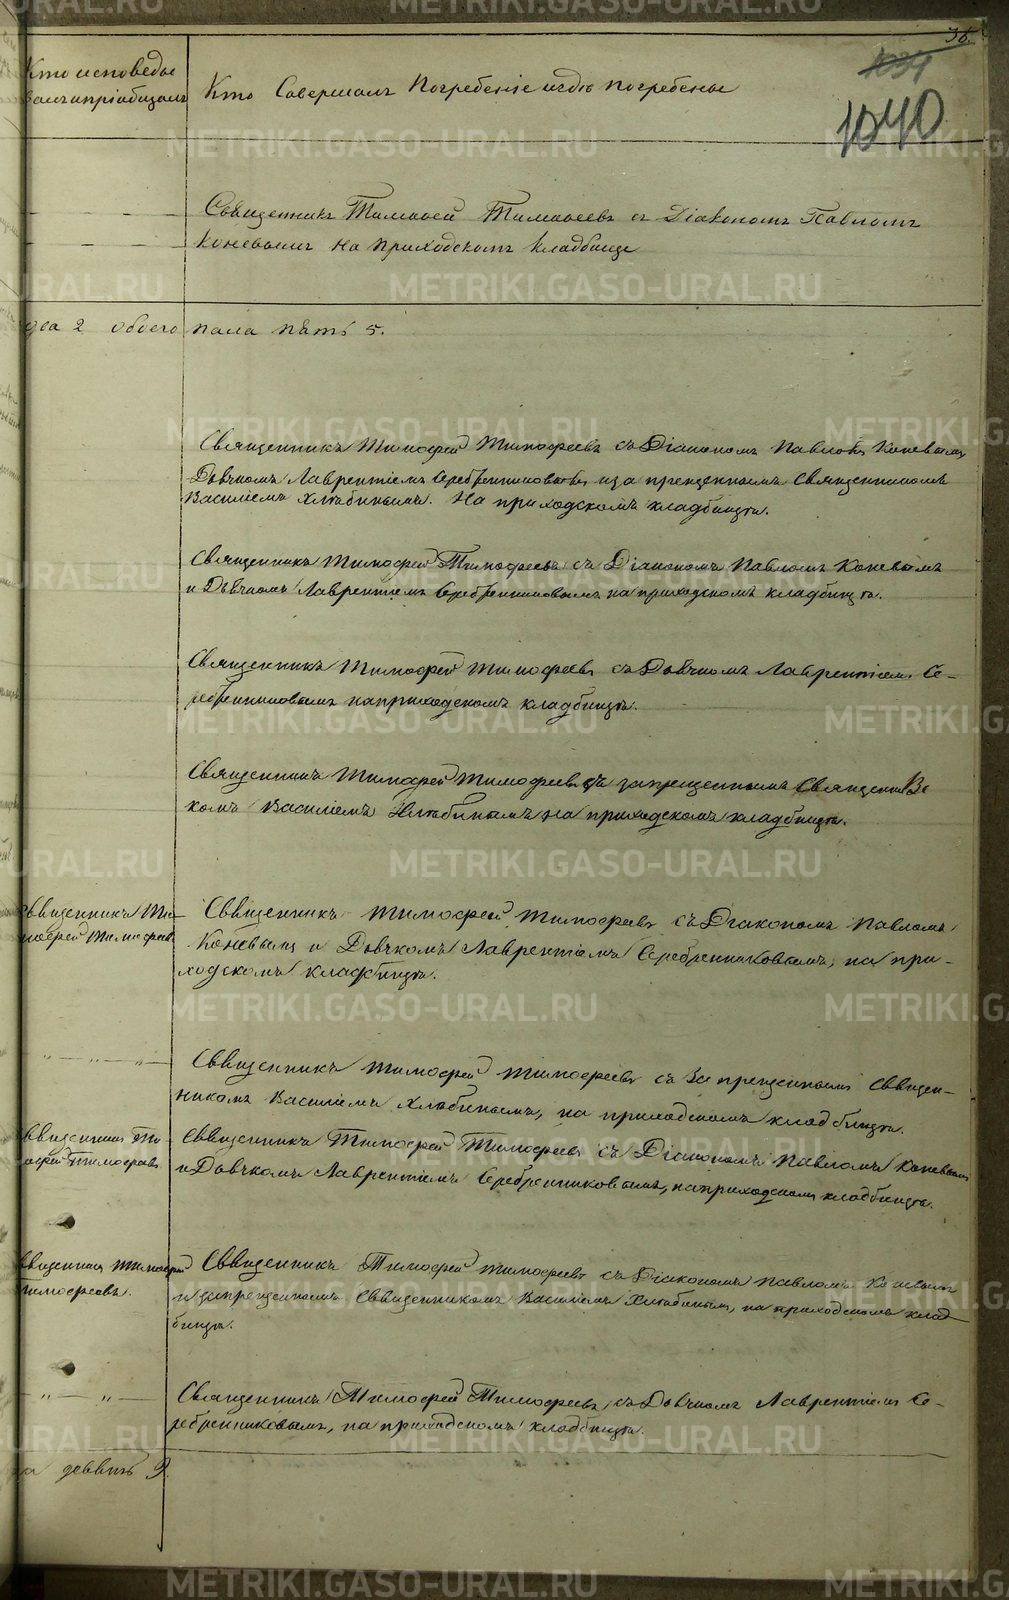 36.
1039
1040
Кто исповедовалъ и пріобщалъ
Кто Совершалъ Погребеніе и гдѣ погребены
Священникъ Тимофей Тимофеевъ съ Діакономъ Павломъ
Коневымъ на приходскомъ кладбище
два 2 обоего пола пять 5.
Священникъ Тимофей Тимофеевъ съ Діакономъ Павломъ Коневымъ
Дьячкомъ Лаврентіемъ Серебренниковымъ и запрещеннымъ Священникомъ
Василіемъ Хлѣбинымъ. На приходскомъ кладбищѣ.
Священникъ Тимофей Тимофеевъ съ Діакономъ Павломъ Коневымъ
и Дьячкомъ Лаврентіемъ Серебренниковымъ на приходскомъ кладбищѣ.
Священникъ Тимофей Тимофеевъ съ Дьячкомъ Лаврентіемъ Се-
ребренниковымъ на приходскомъ кладбищѣ.
Священникъ Тимофей Тимофеевъ съ запрещеннымъ Священни
комъ Василіемъ Хлѣбинымъ на приходскомъ кладбищѣ.
Священникъ Ти-
мофей Тимофеевъ
Священникъ Тимофей Тимофеевъ съ Діакономъ Павломъ
Коневымъ и Дьячкомъ Лаврентіемъ Серебренниковымъ, на при-
ходскомъ кладбищѣ.
Священникъ Тимофей Тимофеевъ съ запрещеннымъ Священ-
никомъ Василіемъ Хлѣбинымъ, на приходскомъ кладбищѣ.
Священникъ Ти-
мофей Тимофеевъ
Священникъ Тимофей Тимофеевъ съ Діакономъ Павломъ Коневымъ
и Дьячкомъ Лаврентіемъ Серебренниковымъ, на приходскомъ кладбищѣ.
Священникъ Тимофей
Тимофеевъ.
Священникъ Тимофей Тимофеевъ съ Діакономъ Павломъ Коневымъ
и запрещеннымъ Священникомъ Василіемъ Хлѣбинымъ, на приходскомъ клад-
бищѣ.
Священникъ Тимофей Тимофеевъ, съ Дьячкомъ Лаврентіемъ Се-
ребренниковымъ, на приходскомъ кладбищѣ.
девять 9.
METRIKI.GASO-URAL.RU